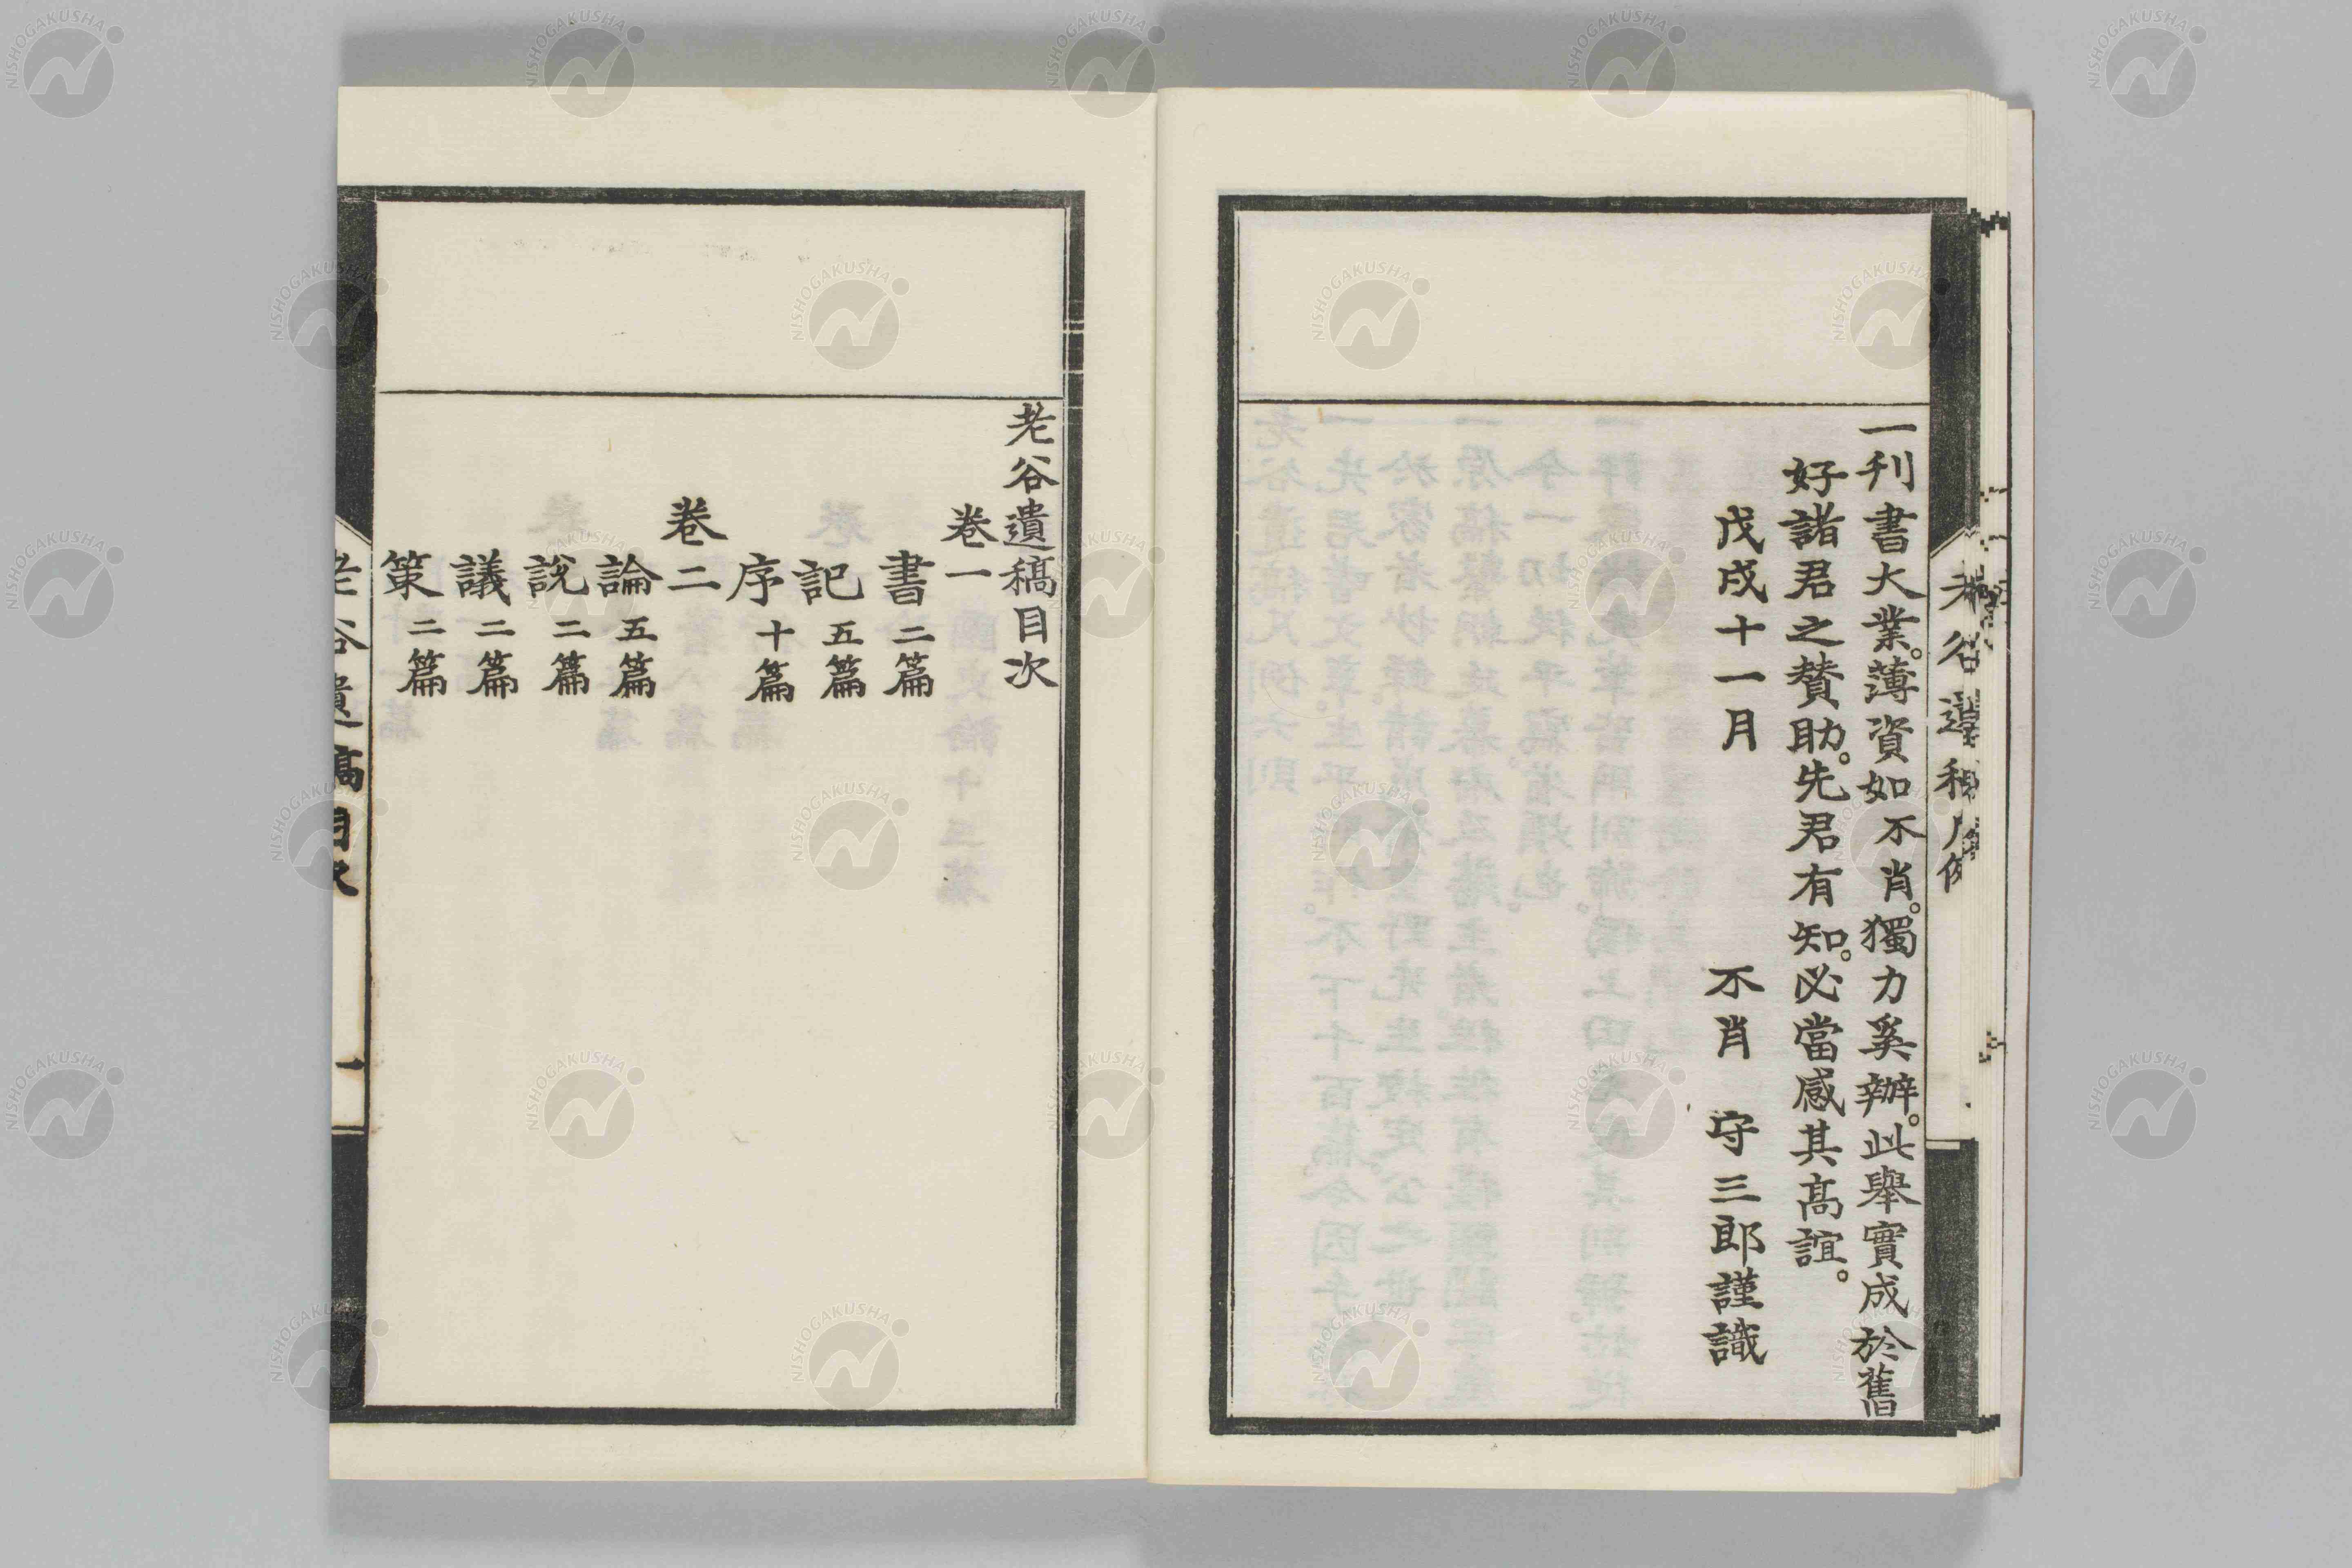 一刊書大業。薄資如不肖。獨力奚辦。此舉實成於舊
好諸君之贊助。先君有知。必當感其高誼。
戊戌十一月
不肖 守三郎謹識
老谷遺稿目次
卷一
書二篇
記五篇
序十篇
卷二
論五篇
說二篇
議二篇
策二篇
老谷遺稿目次 一
NISHOGAKUSHA